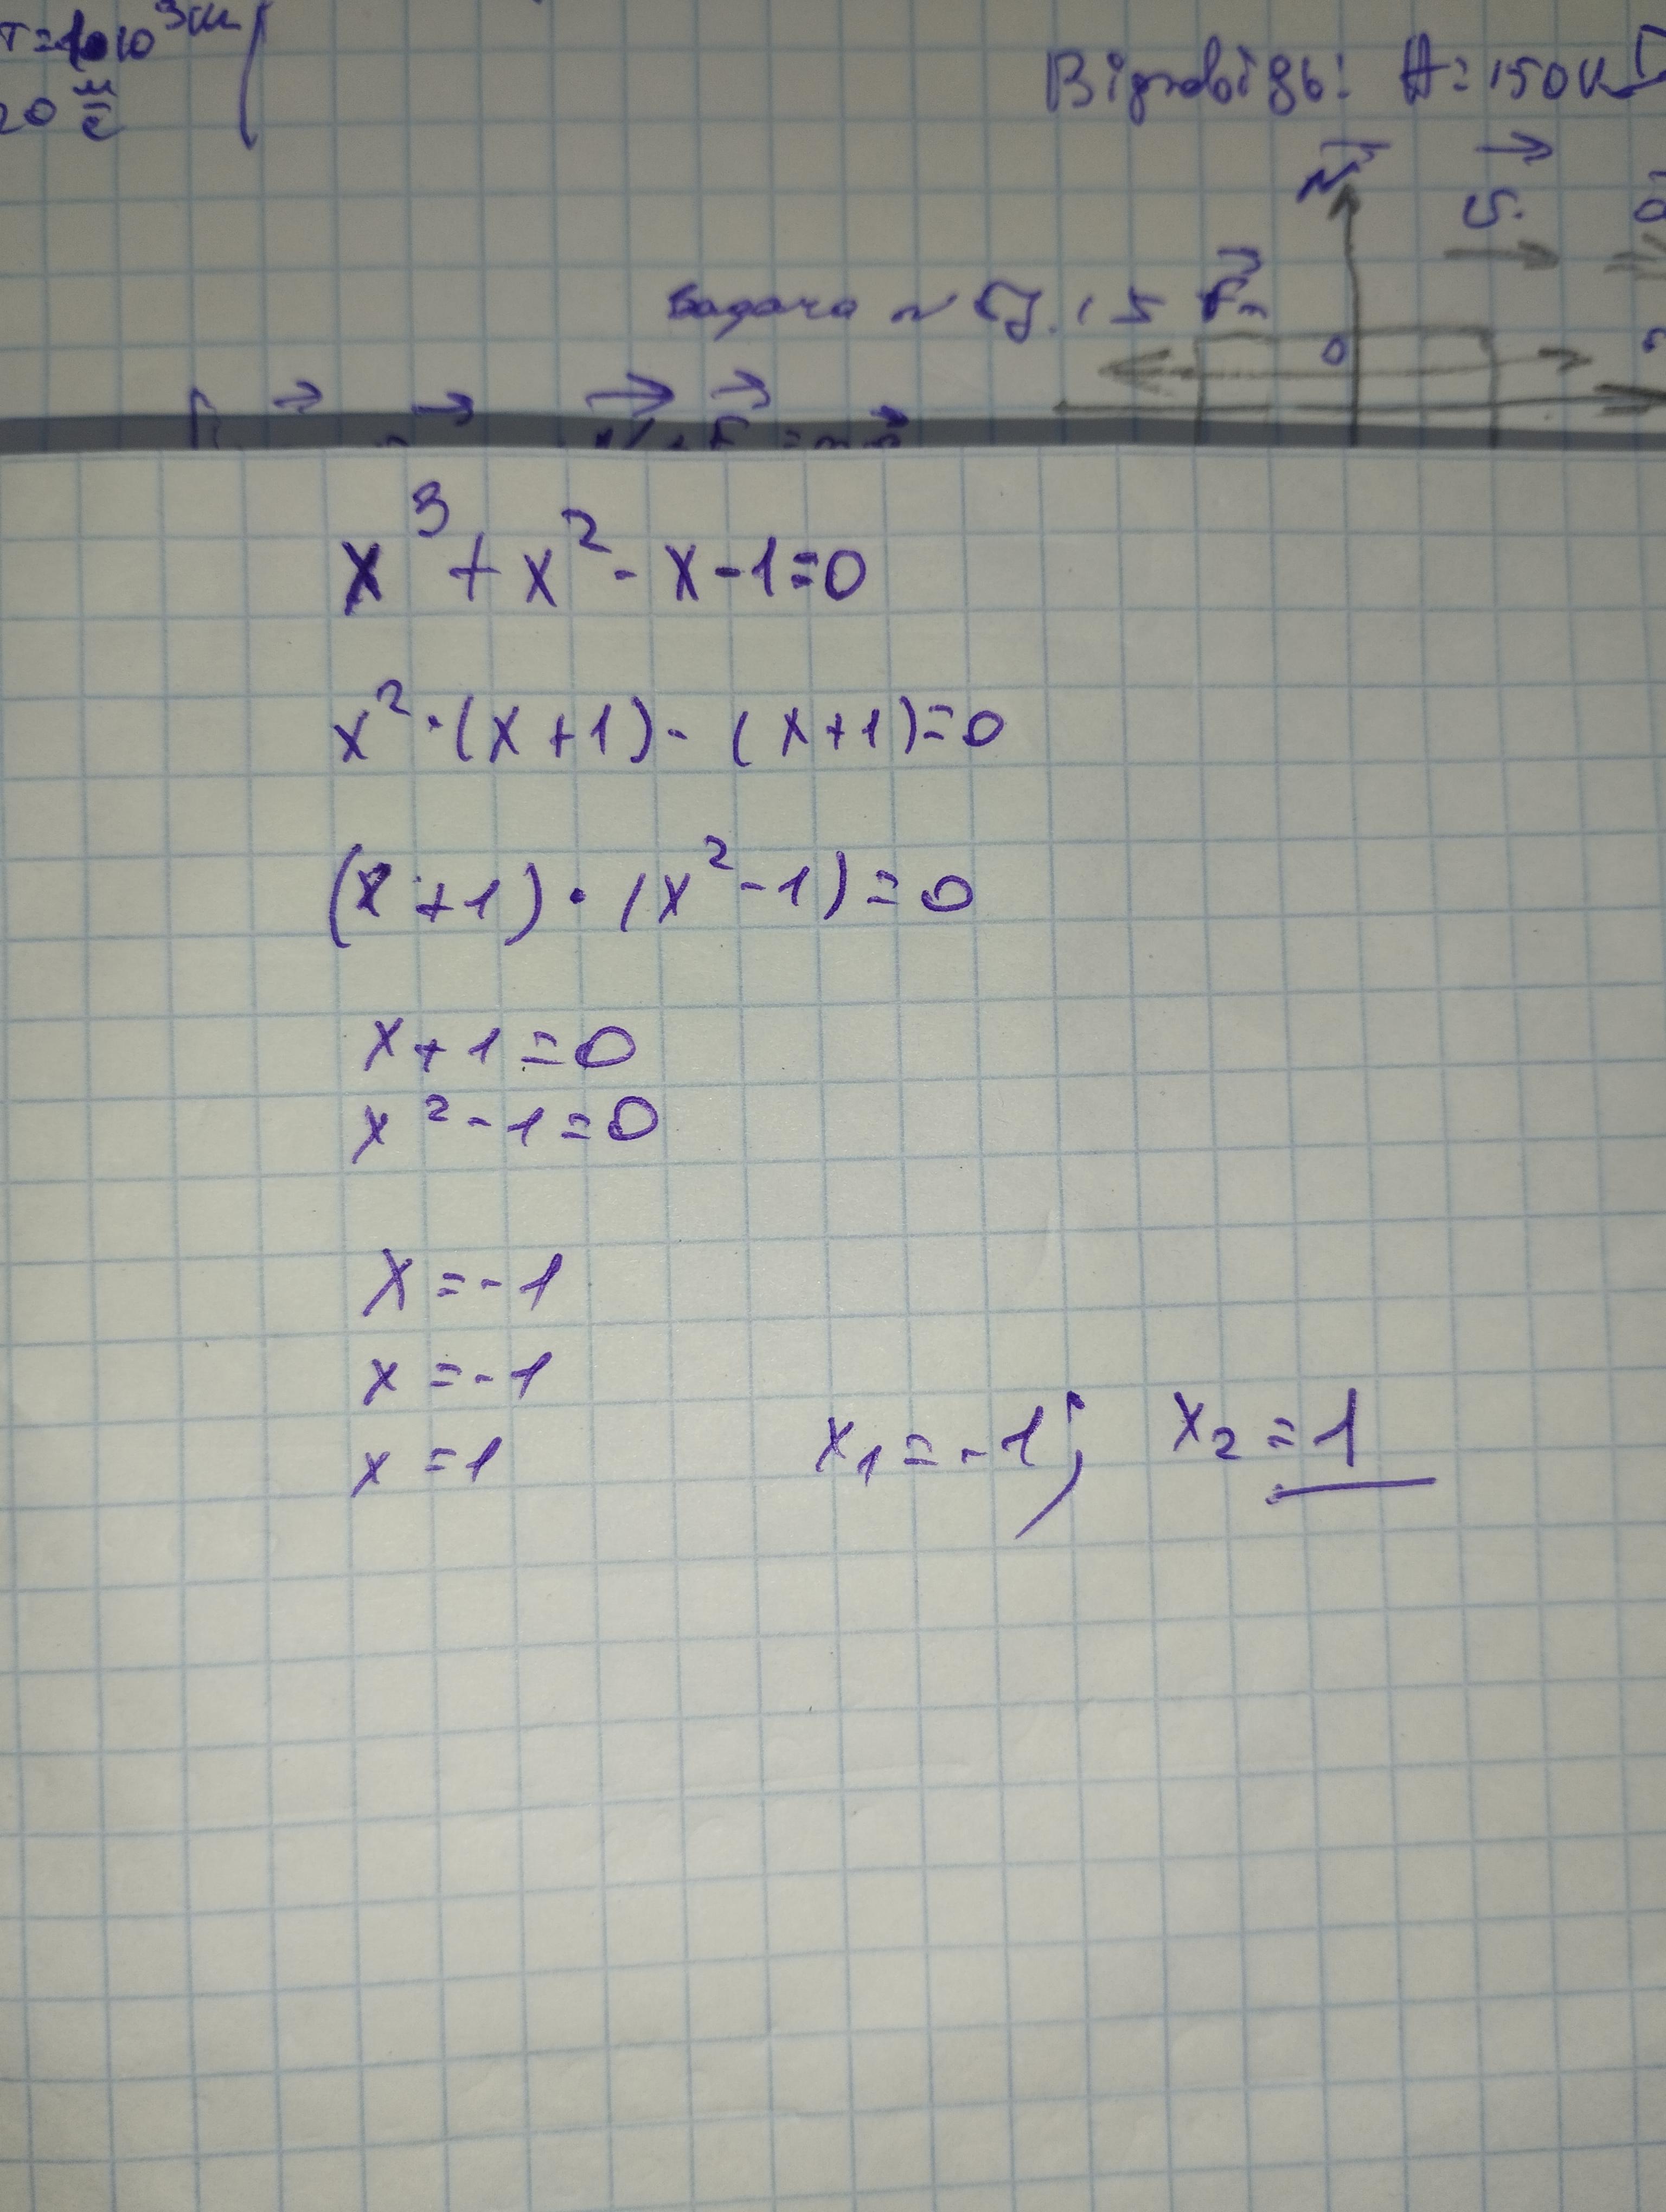 20 м/с
Відповідь: A = 150 к
N
S
Задача № Fт
0
x³ + x² - x - 1 = 0
x² · (x + 1) - (x + 1) = 0
(x + 1) · (x² - 1) = 0
x + 1 = 0
x² - 1 = 0
x = -1
x = -1
x = 1 x₁ = -1; x₂ = 1